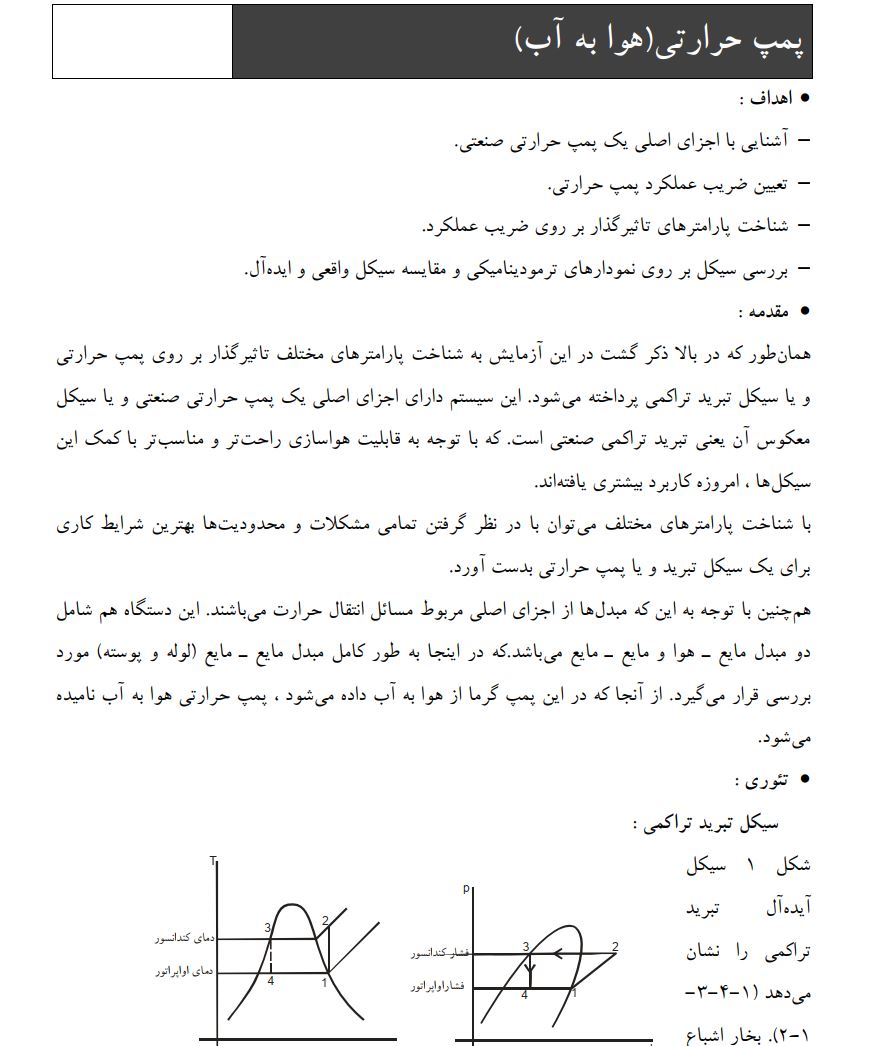 پمپ حرارتی(هوا به آب)
• اهداف :
– آشنایی با اجزای اصلی یک پمپ حرارتی صنعتی.
– تعیین ضریب عملکرد پمپ حرارتی.
– شناخت پارامترهای تاثیرگذار بر روی ضریب عملکرد.
– بررسی سیکل بر روی نمودارهای ترمودینامیکی و مقایسه سیکل واقعی و ایده‌آل.
• مقدمه :
همان‌طور که در بالا ذکر گشت در این آزمایش به شناخت پارامترهای مختلف تاثیرگذار بر روی پمپ حرارتی
و یا سیکل تبرید تراکمی پرداخته می‌شود. این سیستم دارای اجزای اصلی یک پمپ حرارتی صنعتی و یا سیکل
معکوس آن یعنی تبرید تراکمی صنعتی است. که با توجه به قابلیت هواسازی راحت‌تر و مناسب‌تر با کمک این
سیکل‌ها ، امروزه کاربرد بیشتری یافته‌اند.
با شناخت پارامترهای مختلف می‌توان با در نظر گرفتن تمامی مشکلات و محدودیت‌ها بهترین شرایط کاری
برای یک سیکل تبرید و یا پمپ حرارتی بدست آورد.
هم‌چنین با توجه به این که مبدل‌ها از اجزای اصلی مربوط مسائل انتقال حرارت می‌باشند. این دستگاه هم شامل
دو مبدل مایع ـ هوا و مایع ـ مایع می‌باشد.که در اینجا به طور کامل مبدل مایع ـ مایع (لوله و پوسته) مورد
بررسی قرار می‌گیرد. از آنجا که در این پمپ گرما از هوا به آب داده می‌شود ، پمپ حرارتی هوا به آب نامیده
می‌شود.
• تئوری :
سیکل تبرید تراکمی :
شکل ۱ سیکل
ایده‌آل تبرید
تراکمی را نشان
می‌دهد (۱-۴-۳-
۲-۱). بخار اشباع
p
فشار کندانسور
3
2
فشاراواپراتور
4
1
T
3
2
دمای کندانسور
دمای اواپراتور
4
1